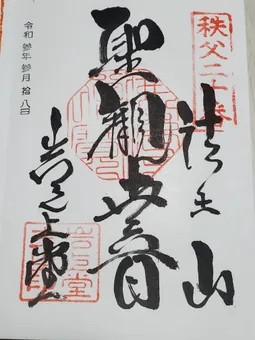 秩父二十番
法王山
聖觀世音
岩之上堂
令和参年参月拾八日